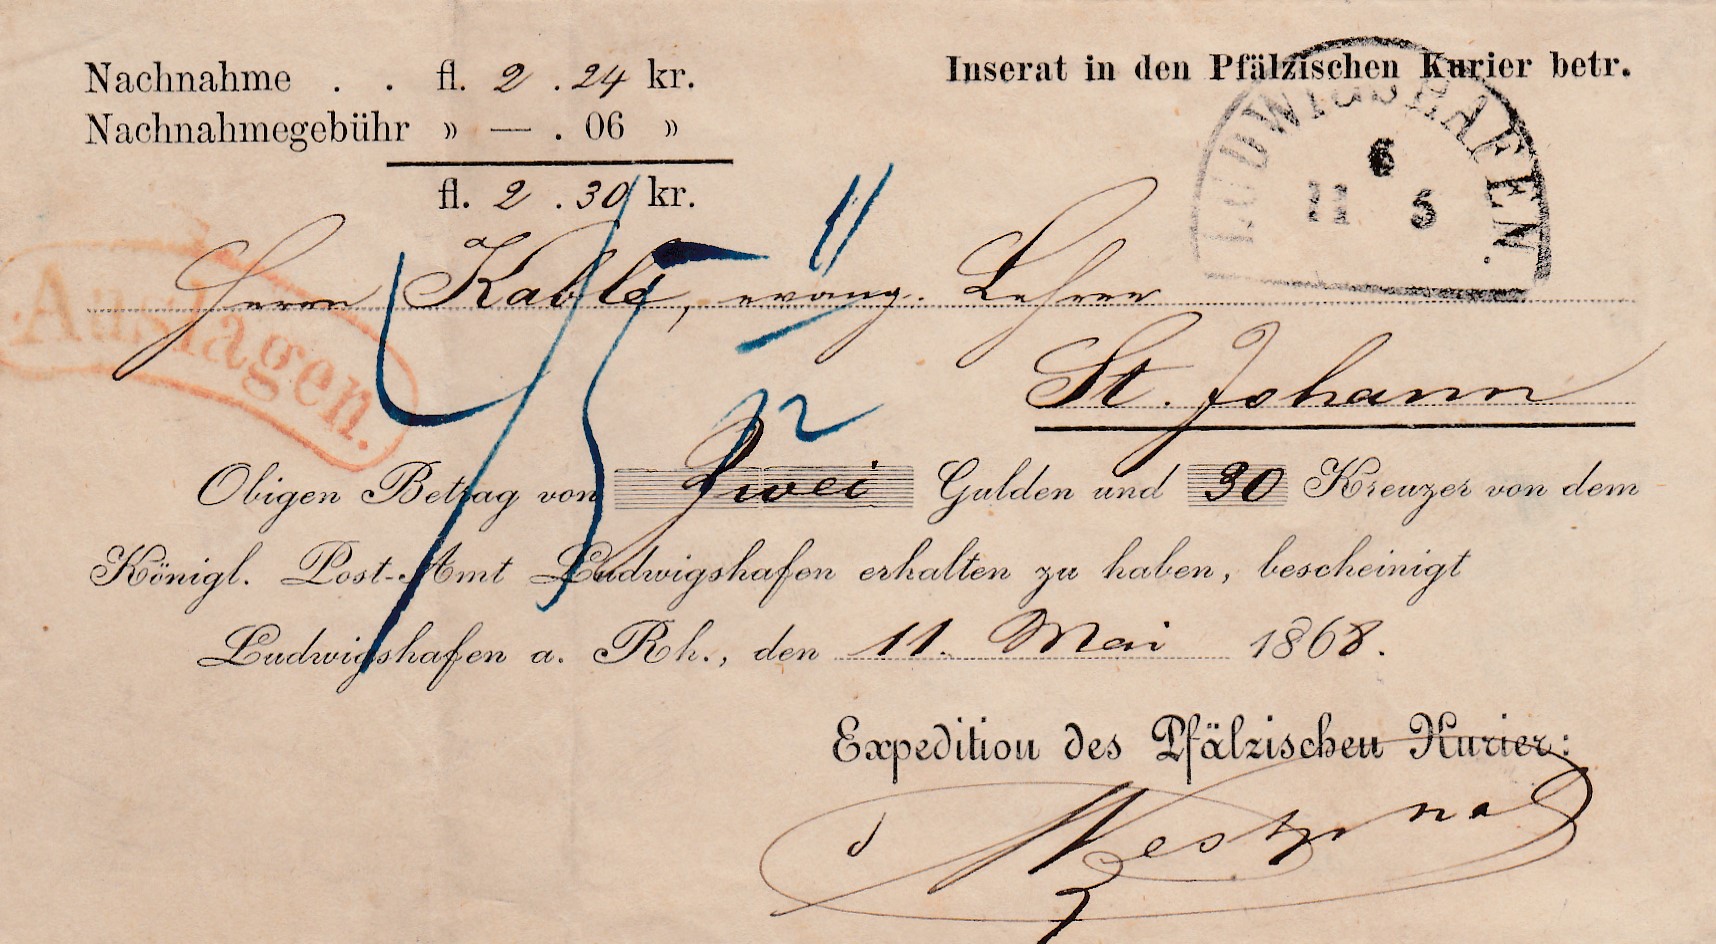 Nachnahme . . fl. 2 . 24 kr.
Inserat in den Pfälzischen Kurier betr.
Nachnahmegebühr » — . 06 »
fl. 2 . 30 kr.
LUDWIGSHAFEN.
6
11 5
Auslagen.
Herrn Kable, evang. Lehrer
St. Johann
Obigen Betrag von Zwei Gulden und 30 Kreuzer von dem
Königl. Post-Amt Ludwigshafen erhalten zu haben, bescheinigt
Ludwigshafen a. Rh., den 11. Mai 1868.
Expedition des Pfälzischen Kurier: